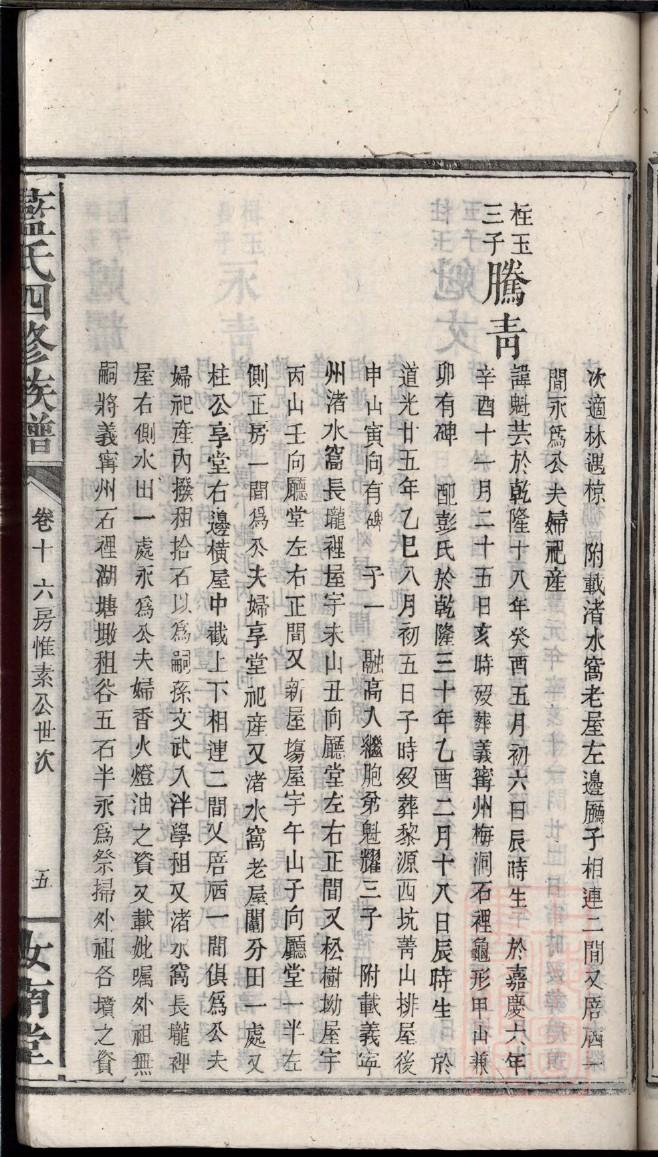 次適林遇椋　附載渚水窩老屋左邊廳子相連二間又厝栖一
間永爲公夫婦祀産
枉玉
三子
騰青
諱魁芸於乾隆十八年癸酉五月初六日辰時生　於嘉慶六年
辛酉十一月二十五日亥時殁葬義寧州梅洞石裡龜形甲山兼
卯有碑　配彭氏於乾隆三十年乙酉二月十八日辰時生　於
道光廿五年乙巳八月初五日子時殁葬黎源西坑菁山排屋後
申山寅向有碑　子一　融高入繼胞弟魁耀三子　附載義寧
州渚水窩長壠裡屋宇未山丑向廳堂左右正間又松樹坳屋宇
丙山壬向廳堂左右正間又新屋塲屋宇午山子向廳堂一半左
側正房一間爲公夫婦享堂祀産又渚水窩老屋鬮分田一處又
柱公享堂右邊橫屋中截上下相連二間又厝栖一間俱爲公夫
婦祀産內撥租拾石以爲嗣孫文武入泮學租又渚水窩長壠裡
屋右側水田一處永爲公夫婦香火燈油之資又載妣囑外祖無
嗣將義寧州石裡湖塘墩租谷五石半永爲祭掃外祖各墳之資
藍氏四修族譜
卷十六房惟素公世次
五
汝南堂